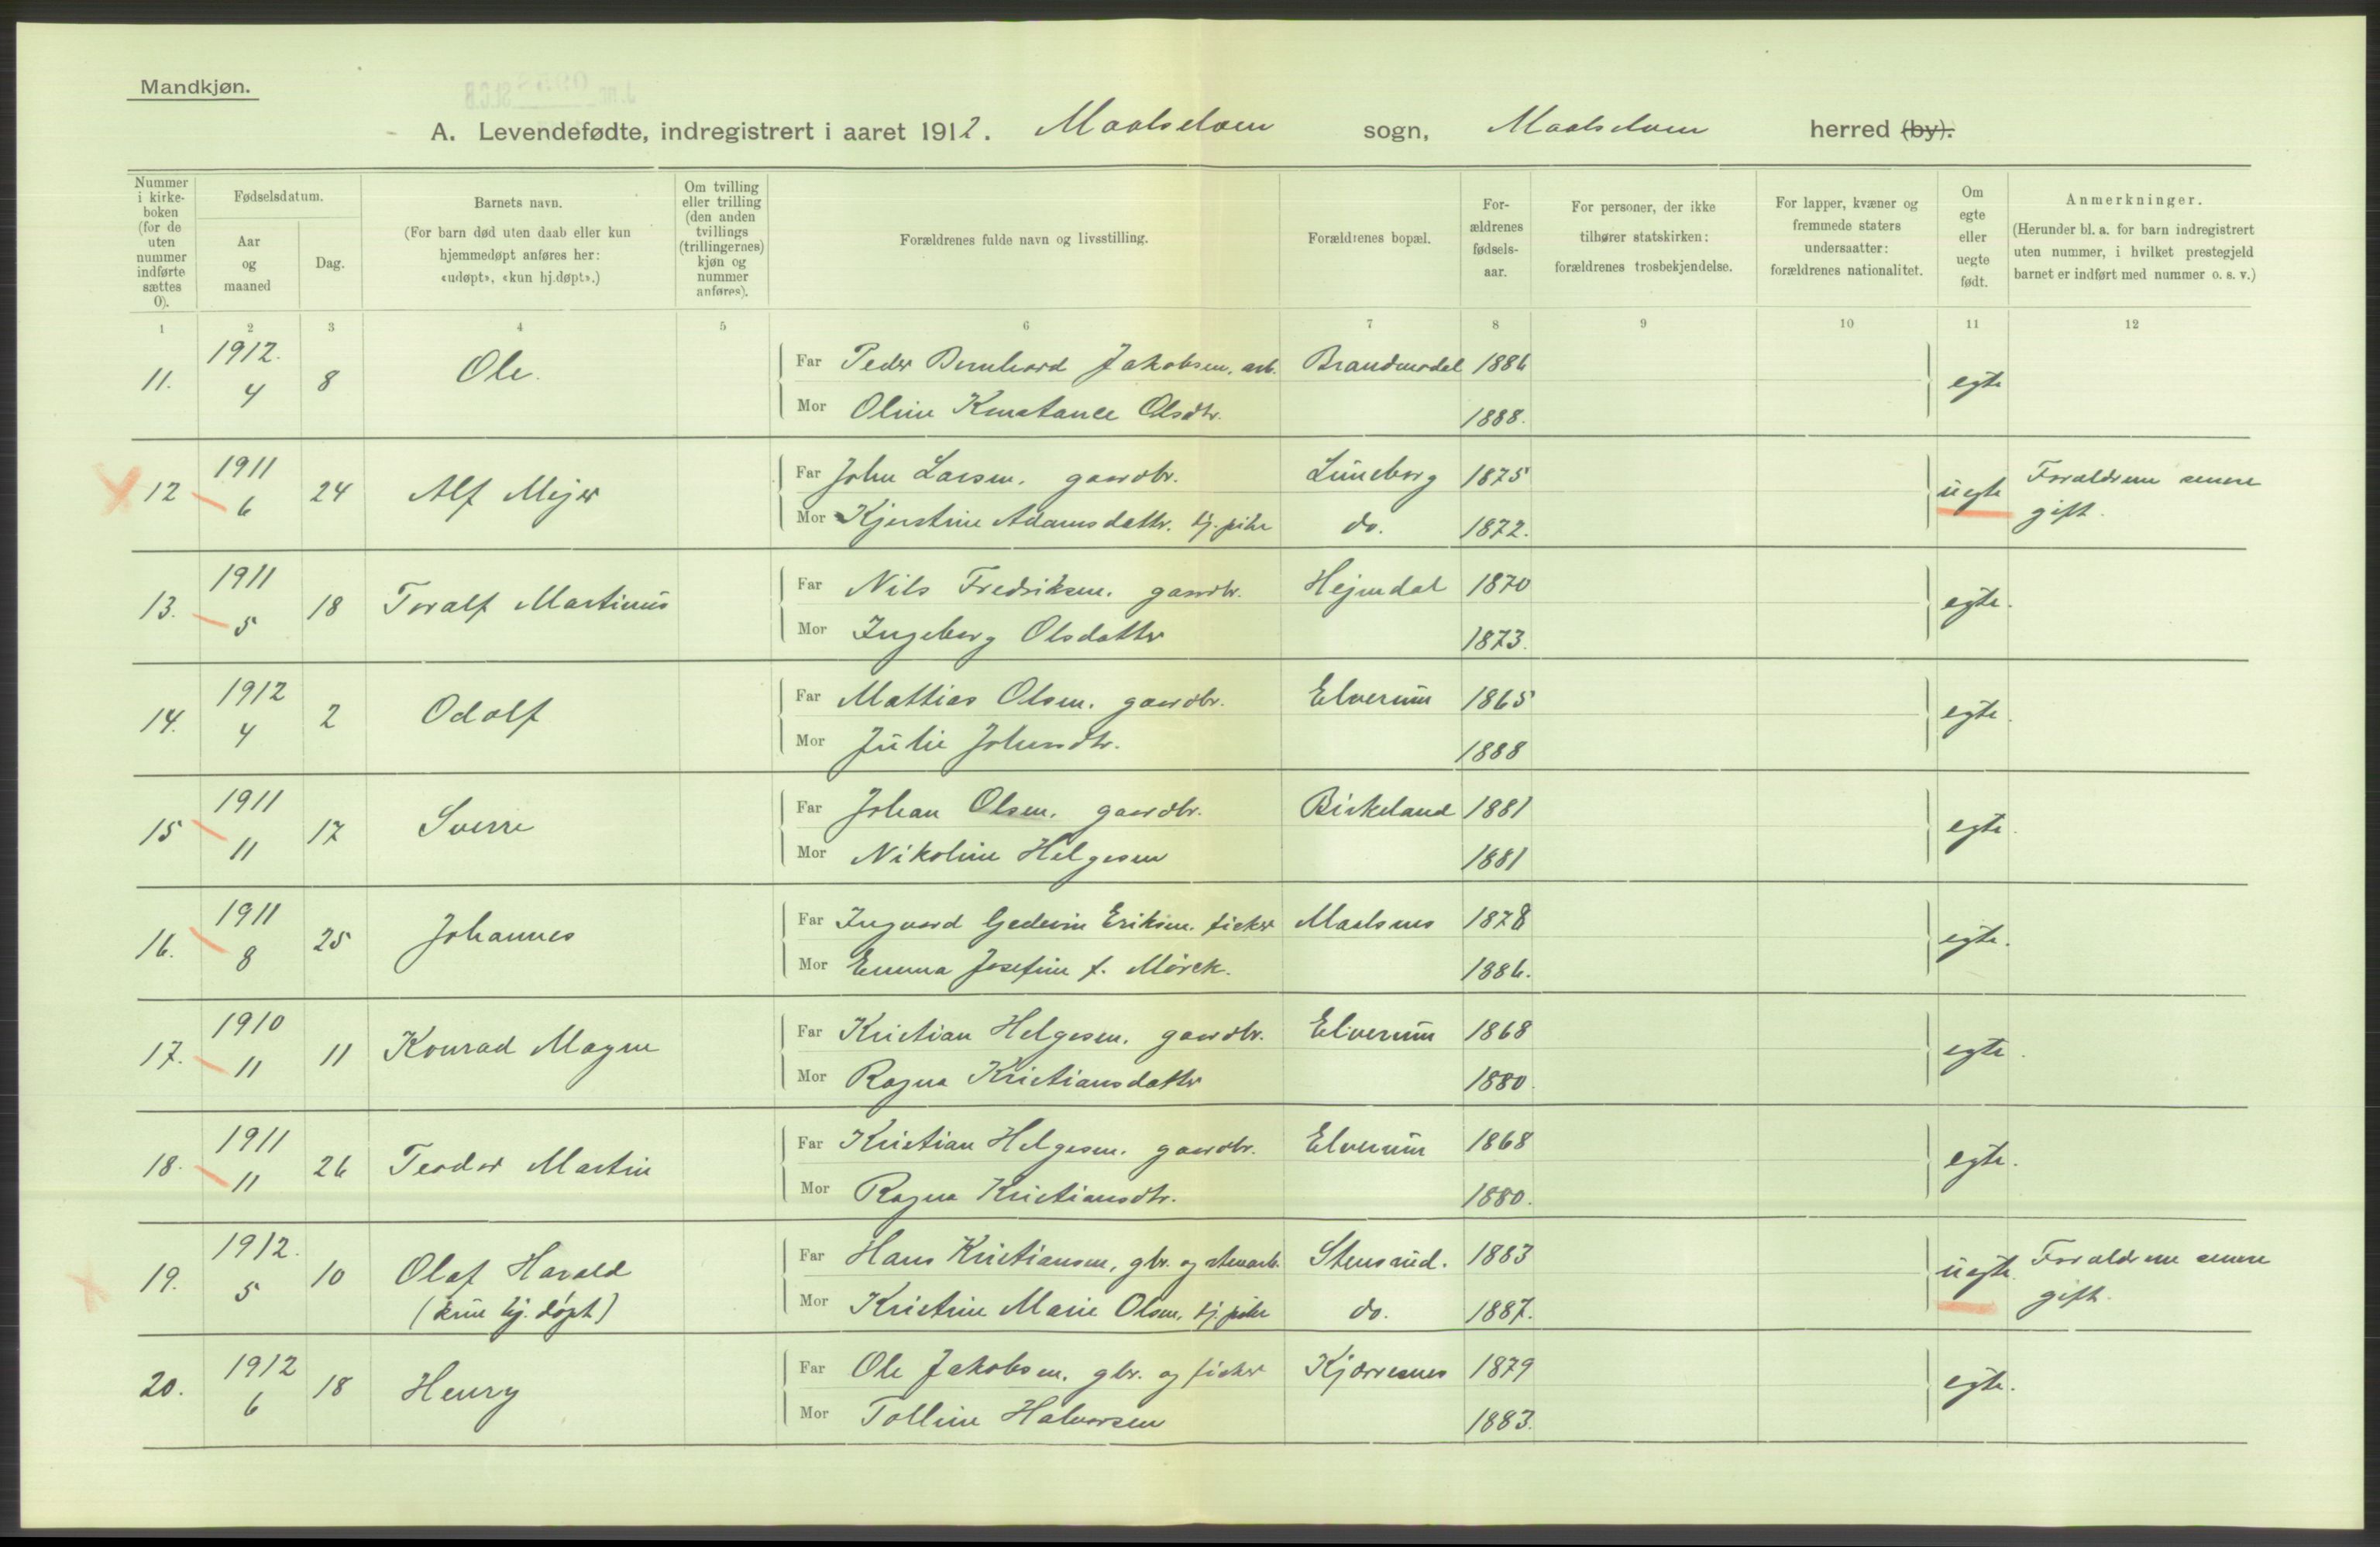 Mandkjøn.
A. Levendefødte, indregistrert i aaret 1912. Maalselven sogn, Maalselven herred (by).
Nummer i kirkeboken (for de uten nummer indførte sættes 0).
Fødselsdatum.
Aar og maaned
Dag.
Barnets navn.
(For barn død uten daab eller kun hjemmedøpt anføres her: «udøpt», «kun hj.døpt».)
Om tvilling eller trilling (den anden tvillings (trillingernes) kjøn og nummer anføres).
Forældrenes fulde navn og livsstilling.
Forældrenes bopæl.
Forældrenes fødselsaar.
For personer, der ikke tilhører statskirken: forældrenes trosbekjendelse.
For lapper, kvæner og fremmede staters undersaatter: forældrenes nationalitet.
Om egte eller uegte født.
Anmerkninger.
(Herunder bl. a. for barn indregistrert uten nummer, i hvilket prestegjeld barnet er indført med nummer o. s. v.)
1 2 3 4 5 6 7 8 9 10 11 12
11. 1912. 4 8 Ole. Far Peder Bernhard Jakobsen, arb. 1886 egte
Mor Oline Konstance Olsdtr. 1888.
12 1911 6 24 Alf Mejer Far John Larsen, gaardbr. Lüneborg 1875 uegte Forældrene senere gift.
Mor Kjerstine Adamsdattr. tj. pike do. 1872.
13. 1911 5 18 Toralf Martinus Far Nils Fredriksen, gaardbr. Hejmdal 1870 egte.
Mor Ingeborg Olsdatter 1873.
14. 1912 4 2 Odolf Far Mattias Olsen, gaardbr. Elverum 1865 egte.
Mor Julie Johnsdtr. 1888
15 1911 11 17 Sverre Far Johan Olsen, gaardbr. Birkeland 1881 egte.
Mor Nikoline Helgesen 1881
16. 1911 8 25 Johannes Far Ingvard Gedeon Eriksen, fisker Maalsnes 1878 egte.
Mor Emma Josefine f. Mörck. 1886.
17. 1910 11 11 Konrad Magne Far Kristian Helgesen, gaardbr. Elverum 1868 egte.
Mor Ragna Kristiansdatter 1880.
18. 1911 11 26 Teodor Martin Far Kristian Helgesen, gaardbr. Elverum 1868 egte.
Mor Ragna Kristiansdtr. 1880.
19. 1912. 5 10 Olaf Harald (kun hj. døpt) Far Hans Kristiansen, gbr. og stenarb. Stensrud. 1883 uegte. Forældrene senere gift.
Mor Kristine Marie Olsen, tj. pike do. 1887.
20. 1912 6 18 Henry Far Ole Jakobsen, gbr. og fisker Kjærresnes 1879 egte.
Mor Tolline Halvorsen 1883.